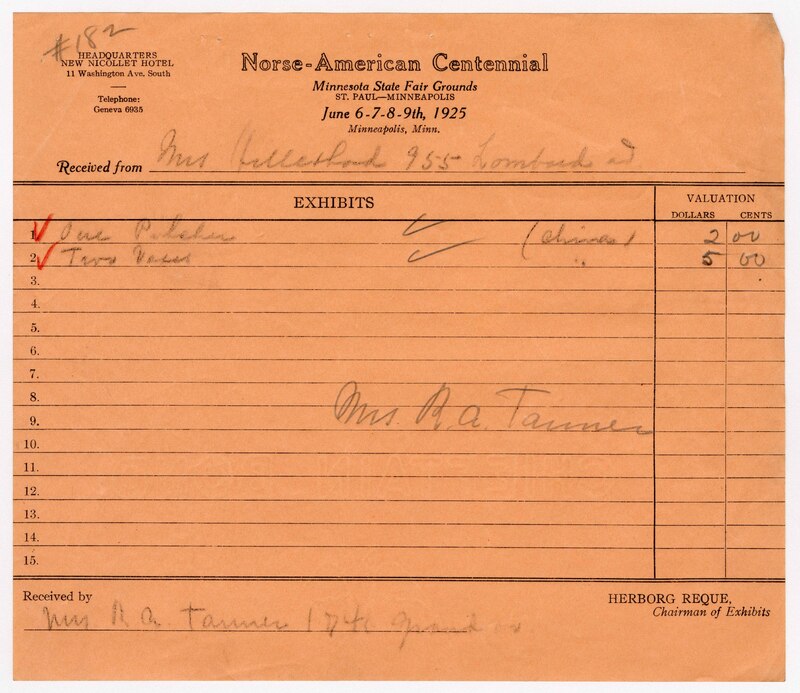 #182
HEADQUARTERS
NEW NICOLLET HOTEL
11 Washington Ave. South
Telephone:
Geneva 6935
Norse-American Centennial
Minnesota State Fair Grounds
ST. PAUL—MINNEAPOLIS
June 6-7-8-9th, 1925
Minneapolis, Minn.
Received from Mrs 955 Lombard
EXHIBITS VALUATION
DOLLARS CENTS
1. One Pitcher (China) 2 00
2. Two Vases " 5 00
3.
4.
5.
6.
7.
8.
9.
10.
11.
12.
13.
14.
15.
Mrs. R. A. Tanner
Received by
Mrs R A. Tanner
HERBORG REQUE,
Chairman of Exhibits